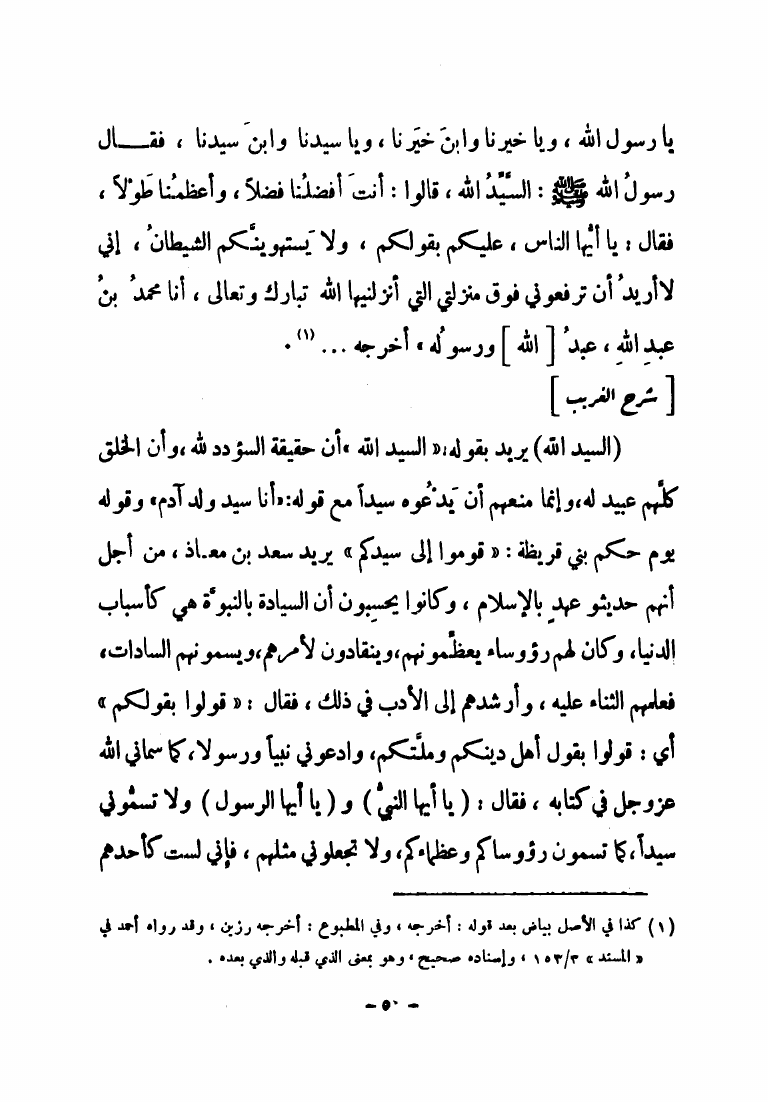 يا رسول الله ، ويا خيرنا وابنَ خَيَرنا ، ويا سيدنا وابنَ سيدنا ، فقـــال
رسولُ الله ﷺ : السَّيِّدُ الله ، قالوا : أنتَ أفضلُنا فضلاً ، وأعظمُنا طَوْلاً ،
فقال : يا أيُّها الناس ، عليكم بقولكم ، ولا يَستهوينَّكم الشيطانُ ، إني
لا أريدُ أن ترفعوني فوق منزلتي التي أنزلنيها الله تبارك وتعالى ، أنا محمدُ بنُ
عبدِ اللهِ ، عبدُ [ الله ] ورسولُه » أخرجه ... (١) .
[ شرح الغريب ]
(السيد الله) يريد بقوله: « السيد الله » أن حقيقة السؤدد لله ، وأن الخلق
كلَّهم عبيد له ، وإنما منعهم أن يَدْعُوه سيداً مع قوله: « أنا سيد ولد آدم » وقوله
يوم حكم بني قريظة : « قوموا إلى سيدكم » يريد سعد بن معـاذ ، من أجل
أنهم حديثو عهدٍ بالإسلام ، وكانوا يحسِبون أن السيادة بالنبوَّة هي كأسباب
الدنيا ، وكان لهم رؤوساء يعظِّمونهم ، وينقادون لأمرهم ، ويسمونهم السادات ،
فعلمهم الثناء عليه ، وأرشدهم إلى الأدب في ذلك ، فقال : « قولوا بقولكم »
أي : قولوا بقول أهل دينكم وملَّتكم ، وادعوني نبياً ورسولا ، كما سماني الله
عزوجل في كتابه ، فقال : ( يا أيها النبيُّ ) و ( يا أيها الرسول ) ولا تسمُّوني
سيداً ، كما تسمون رؤوساكم وعظماءكم ، ولا تجعلوني مثلهم ، فإني لست كأحدهم
(١) كذا في الأصل بياض بعد قوله : أخرجه ، وفي المطبوع : أخرجه رزين ، وقد رواه أحمد في
« المسند » ١٥٣/٣ ، وإسناده صحيح ، وهو بمعنى الذي قبله والذي بعده .
- ٥٠ -